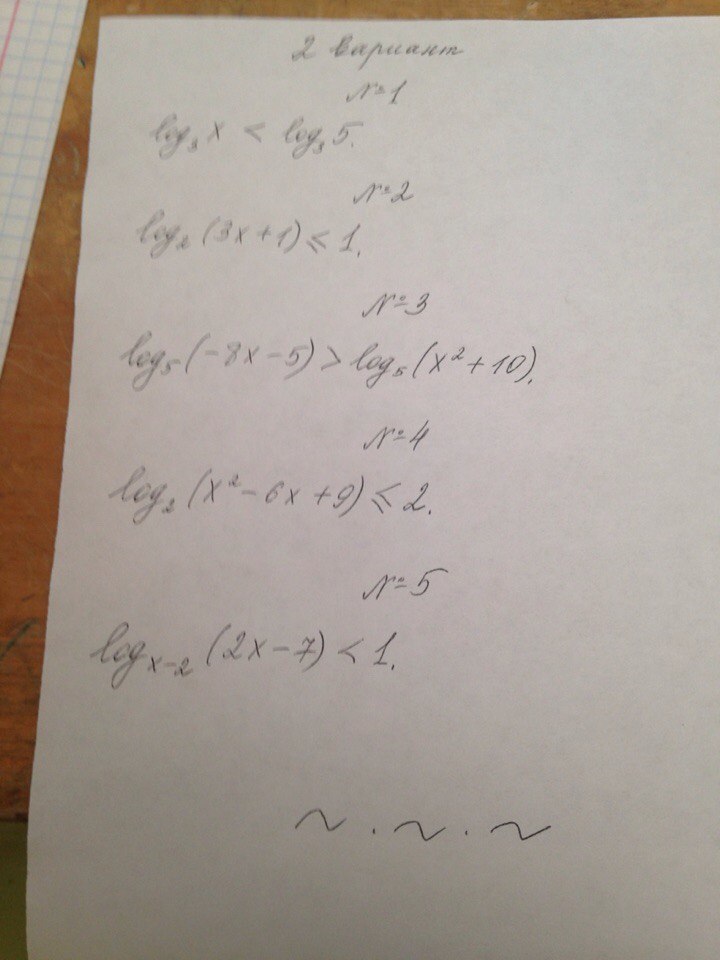 2 вариант
№1
log₃ x < log₃ 5.
№2
log₂ (3x+1) ≤ 1.
№3
log₅ (-8x-5) > log₅ (x²+10).
№4
log₂ (x²-6x+9) ≤ 2.
№5
logₓ₋₂ (2x-7) < 1.